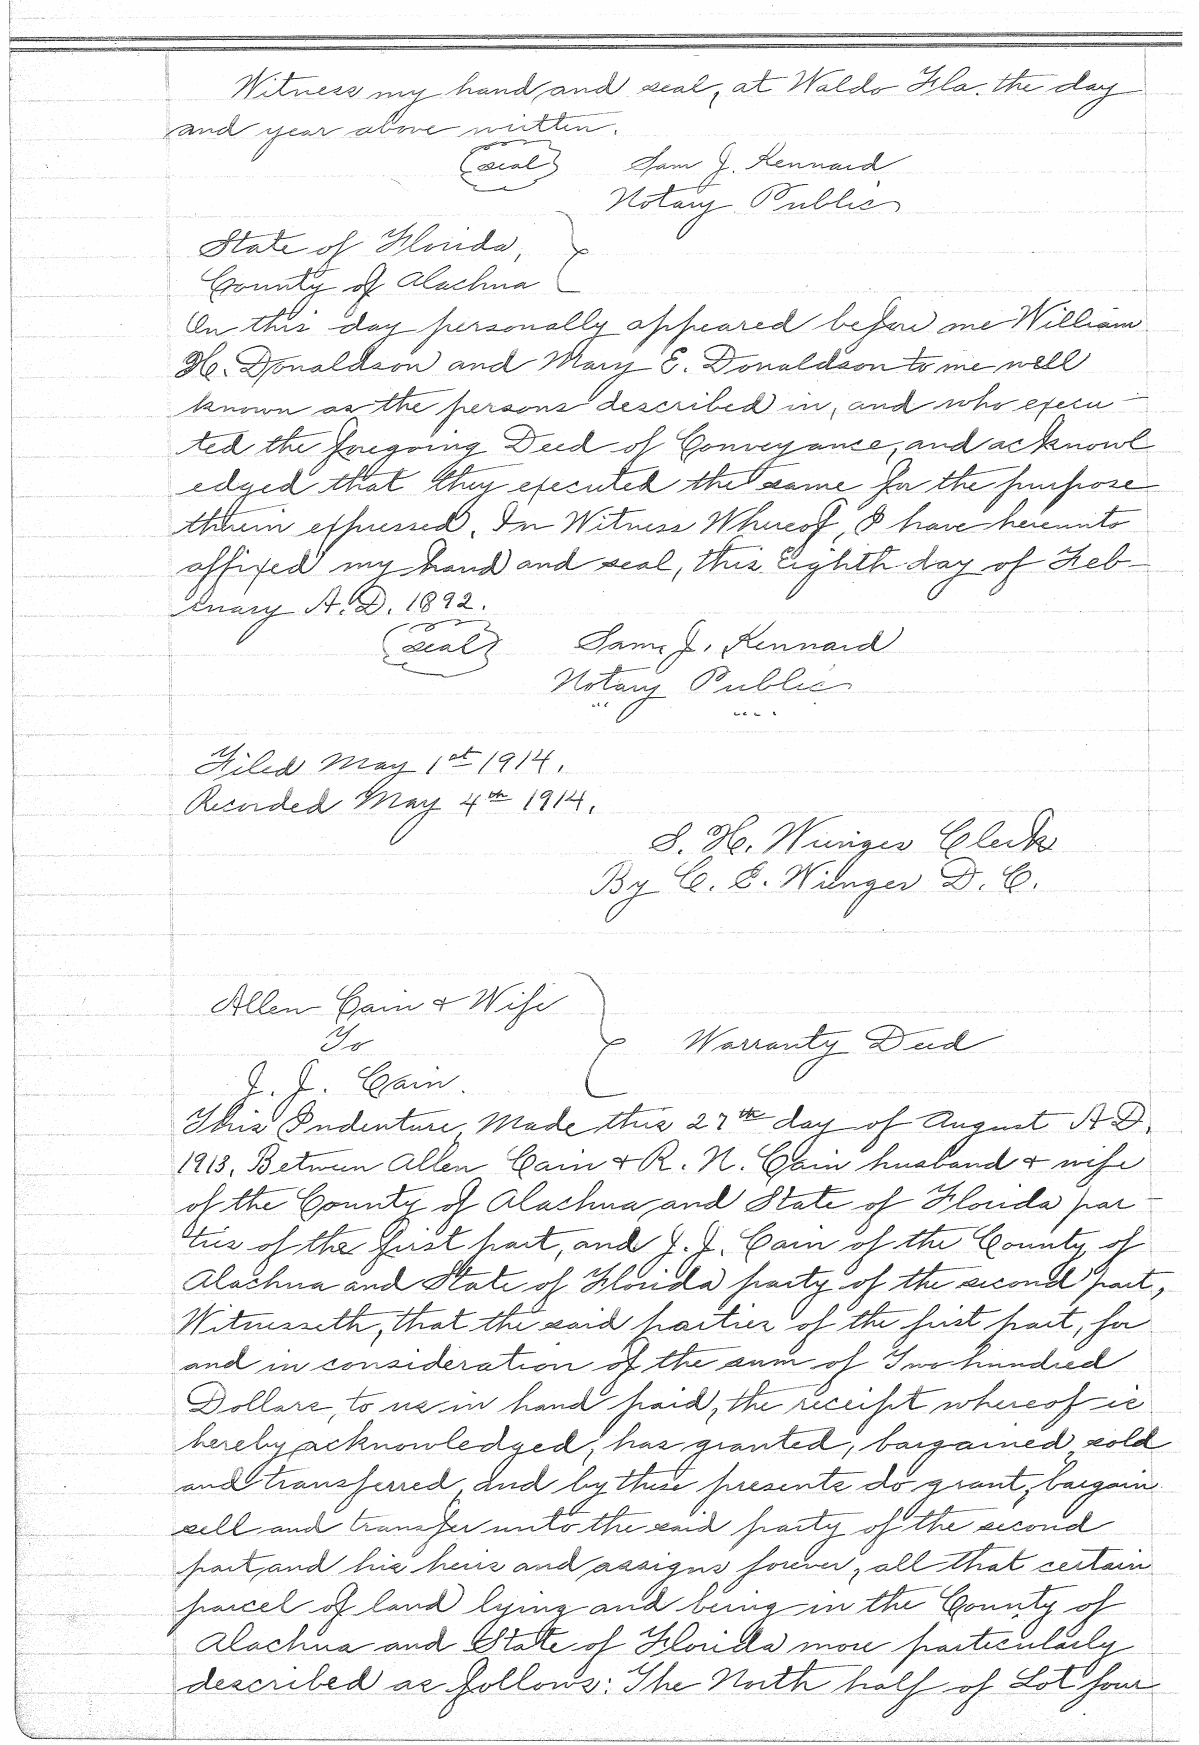 Witness my hand and seal, at Waldo Fla. the day
and year above written.
(seal) Sam J. Kennard
Notary Public
State of Florida,
County of Alachua
On this day personally appeared before me William
H. Donaldson and Mary E. Donaldson to me well
known as the persons described in, and who execu-
ted the foregoing Deed of Conveyance, and acknowl
edged that they executed the same for the purpose
therein expressed. In Witness Whereof, I have hereunto
affixed my hand and seal, this Eighth day of Feb-
ruary A.D. 1892.
(seal) Sam. J. Kennard
Notary Public
Filed May 1st 1914.
Recorded May 4th 1914.
S. H. Wienges Clerk
By C. E. Wienges D. C.
Allen Cain & Wife
To
Warranty Deed
J. J. Cain.
This Indenture, Made this 27th day of August A.D.
1913, Between Allen Cain & R. N. Cain husband & wife
of the County of Alachua and State of Florida par-
ties of the first part, and J. J. Cain of the County of
Alachua and State of Florida party of the second part,
Witnesseth, that the said parties of the first part, for
and in consideration of the sum of Two hundred
Dollars, to us in hand paid, the receipt whereof is
hereby acknowledged, has granted, bargained, sold
and transferred, and by these presents do grant, bargain
sell and transfer unto the said party of the second
part and his heirs and assigns forever, all that certain
parcel of land lying and being in the County of
Alachua and State of Florida more particularly
described as follows: The North half of Lot four